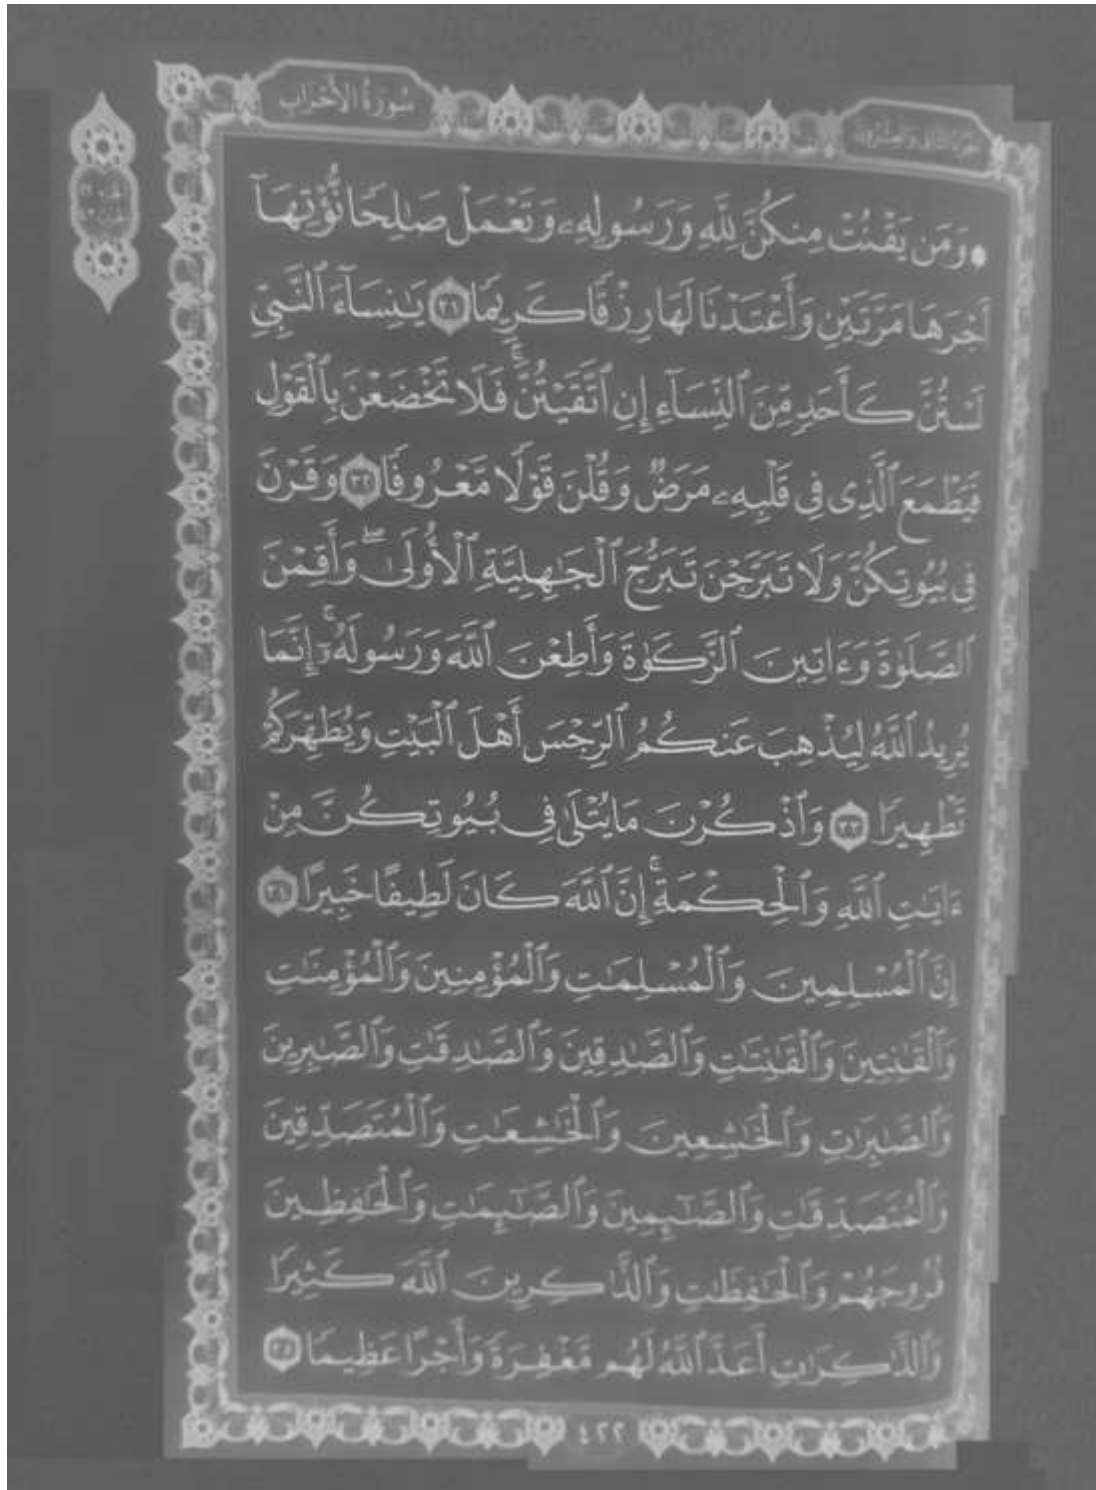 سُورَةُ الأَحْزَابِ
۞ وَمَن يَقْنُتْ مِنكُنَّ لِلَّهِ وَرَسُولِهِۦ وَتَعْمَلْ صَٰلِحًا نُّؤْتِهَآ
أَجْرَهَا مَرَّتَيْنِ وَأَعْتَدْنَا لَهَا رِزْقًا كَرِيمًا ٣١ يَٰنِسَآءَ ٱلنَّبِيِّ
لَسْتُنَّ كَأَحَدٍ مِّنَ ٱلنِّسَآءِ إِنِ ٱتَّقَيْتُنَّۚ فَلَا تَخْضَعْنَ بِٱلْقَوْلِ
فَيَطْمَعَ ٱلَّذِى فِى قَلْبِهِۦ مَرَضٌ وَقُلْنَ قَوْلًا مَّعْرُوفًا ٣٢ وَقَرْنَ
فِى بُيُوتِكُنَّ وَلَا تَبَرَّجْنَ تَبَرُّجَ ٱلْجَٰهِلِيَّةِ ٱلْأُولَىٰۖ وَأَقِمْنَ
ٱلصَّلَوٰةَ وَءَاتِينَ ٱلزَّكَوٰةَ وَأَطِعْنَ ٱللَّهَ وَرَسُولَهُۥٓۚ إِنَّمَا
يُرِيدُ ٱللَّهُ لِيُذْهِبَ عَنكُمُ ٱلرِّجْسَ أَهْلَ ٱلْبَيْتِ وَيُطَهِّرَكُمْ
تَطْهِيرًا ٣٣ وَٱذْكُرْنَ مَا يُتْلَىٰ فِى بُيُوتِكُنَّ مِنْ
ءَايَٰتِ ٱللَّهِ وَٱلْحِكْمَةِۚ إِنَّ ٱللَّهَ كَانَ لَطِيفًا خَبِيرًا ٣٤
إِنَّ ٱلْمُسْلِمِينَ وَٱلْمُسْلِمَٰتِ وَٱلْمُؤْمِنِينَ وَٱلْمُؤْمِنَٰتِ
وَٱلْقَٰنِتِينَ وَٱلْقَٰنِتَٰتِ وَٱلصَّٰدِقِينَ وَٱلصَّٰدِقَٰتِ وَٱلصَّٰبِرِينَ
وَٱلصَّٰبِرَٰتِ وَٱلْخَٰشِعِينَ وَٱلْخَٰشِعَٰتِ وَٱلْمُتَصَدِّقِينَ
وَٱلْمُتَصَدِّقَٰتِ وَٱلصَّٰٓئِمِينَ وَٱلصَّٰٓئِمَٰتِ وَٱلْحَٰفِظِينَ
فُرُوجَهُمْ وَٱلْحَٰفِظَٰتِ وَٱلذَّٰكِرِينَ ٱللَّهَ كَثِيرًا
وَٱلذَّٰكِرَٰتِ أَعَدَّ ٱللَّهُ لَهُم مَّغْفِرَةً وَأَجْرًا عَظِيمًا ٣٥
٤٢٢